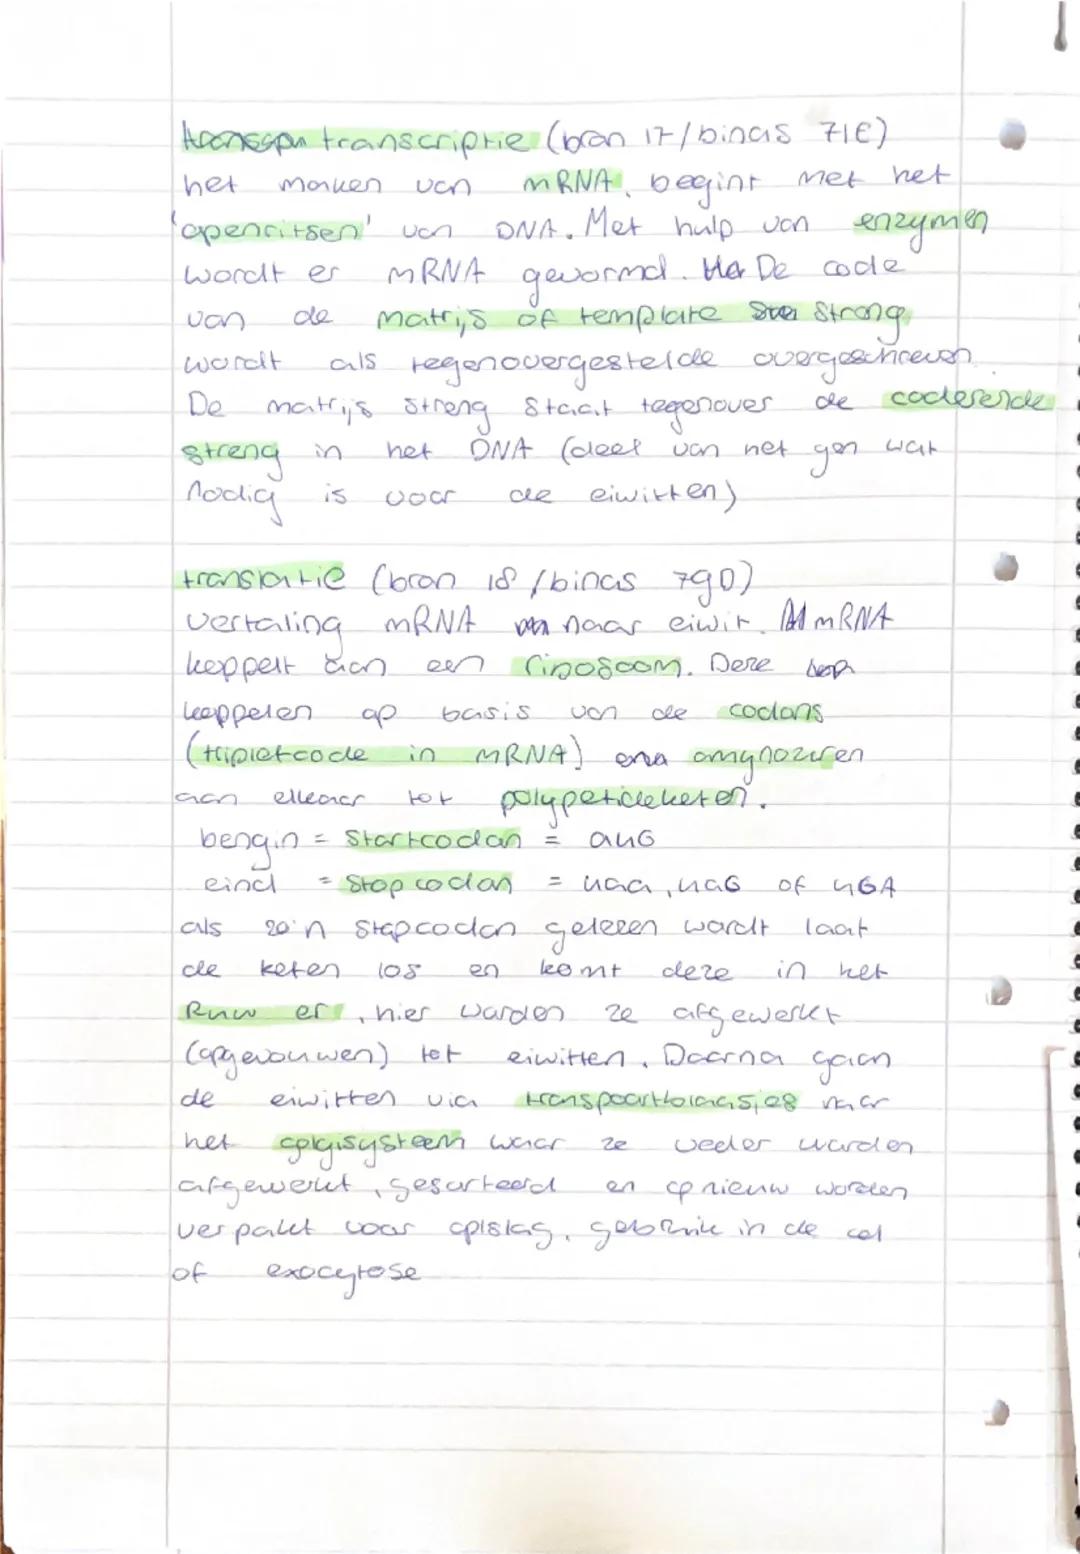 transcriptie (bron 17/binas 71E)
het maken van mRNA, begint met het
'openritsen' van DNA. Met hulp van enzymen
wordt er mRNA gevormd. De code
van de matrijs of template streng
wordt als tegenovergestelde overgeschreven
De matrijs streng staat tegenover de coderende
streng in het DNA (deel van het gen wat
nodig is voor de eiwitten)
translatie (bron 18 /binas 79D)
vertaling mRNA naar eiwit. mRNA
koppelt aan een ribosoom. Deze
koppelen op basis van de codons
(tripletcode in mRNA) amynozuren
aan elkaar tot polypeticleketen.
bengin = startcodon = auG
eind = Stopcodon = uaa, uaG of uGA
als zo'n stopcodon gelezen wordt laat
de keten los en komt deze in het
Ruw er, hier worden ze afgewerkt
(opgevouwen) tot eiwitten. Daarna gaan
de eiwitten via transportblaasjes naar
het golgisysteem waar ze veder worden
afgewerkt, gesorteerd en opnieuw worden
verpakt voor oplslag, gebruik in de cel
of exocytose